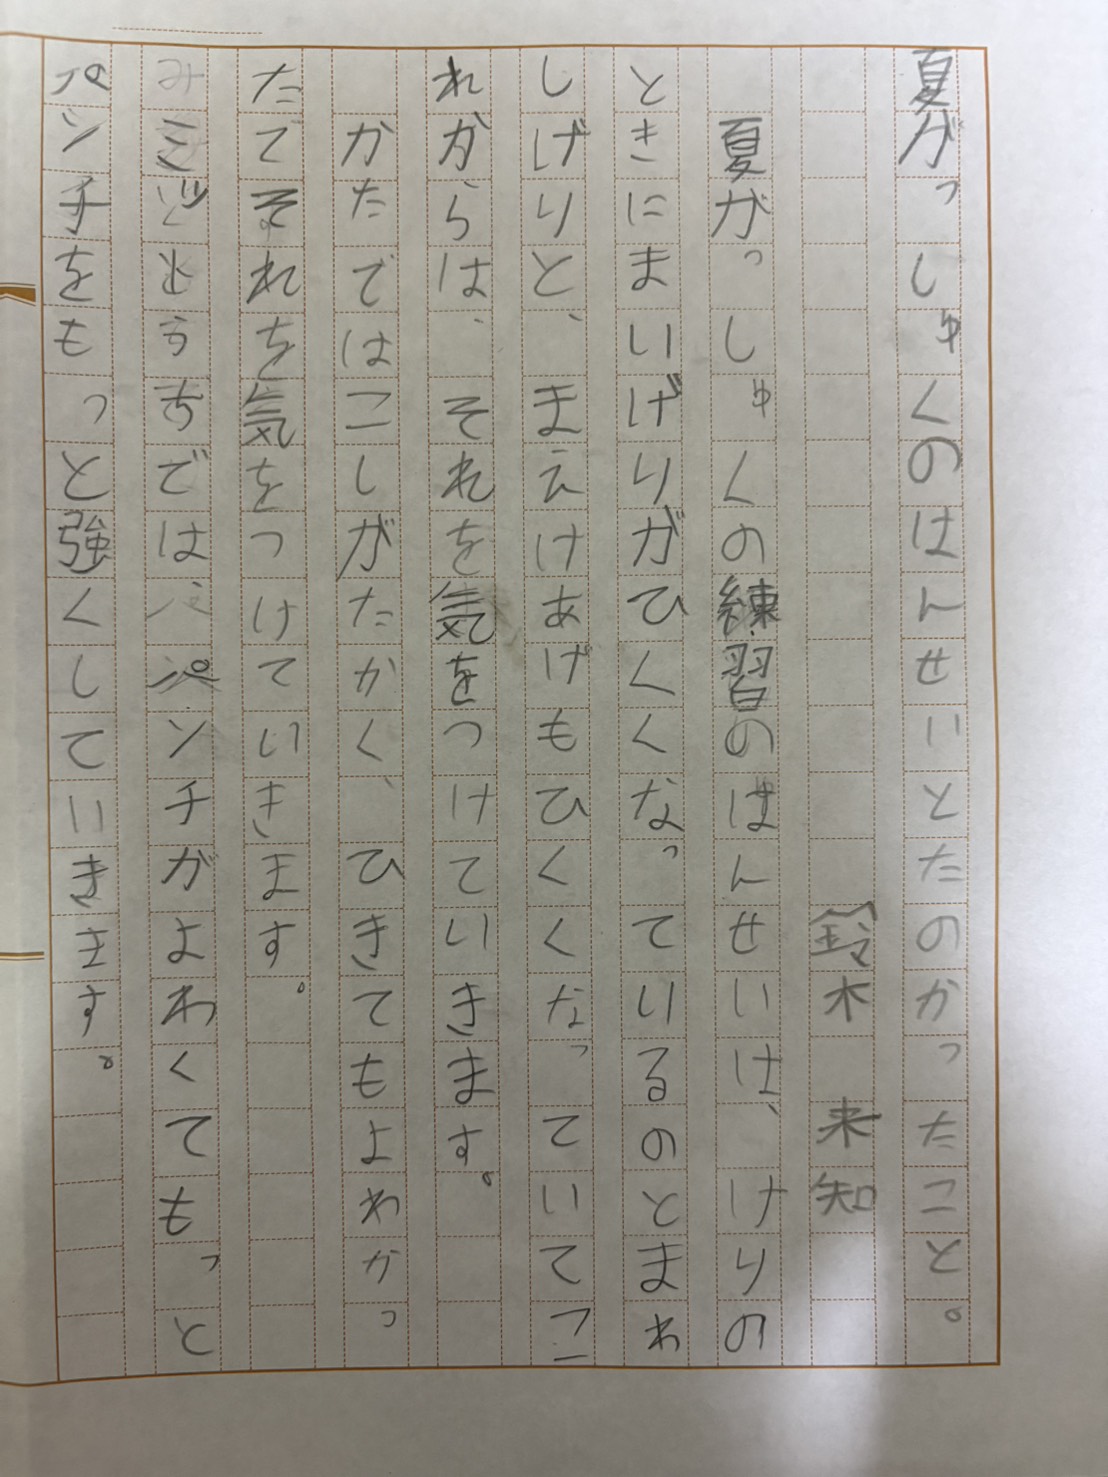 夏がっしゅくのはんせいとたのかったこと。
鈴木 来知
夏がっしゅくの練習のはんせいは、けりの
ときにまいげりがひくくなっているのとまわ
しげりと、まえけあげもひくくなっていてこ
れからは、それを気をつけていきます。
かたではこしがたかく、ひきてもよわかっ
たでそれを気をつけていきます。
みミットうちではパンチがよわくてもっと
パンチをもっと強くしていきます。